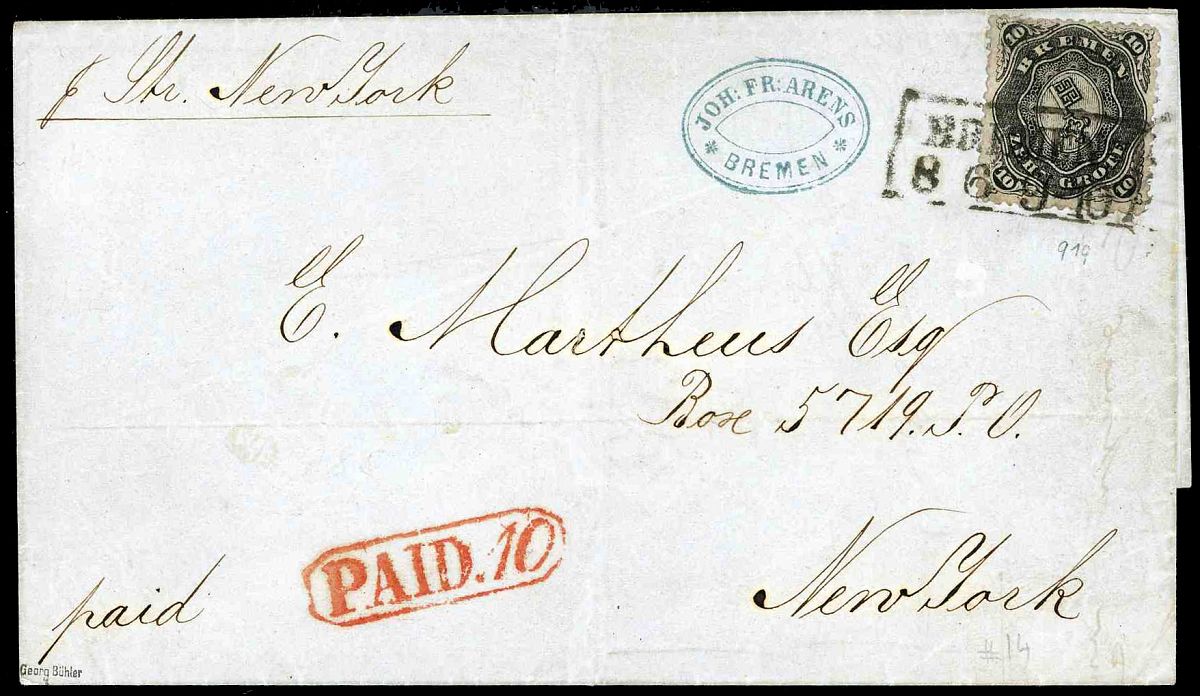 p Str. New York
JOH: FR: ARENS
* BREMEN *
10 BREMEN 10
10 ZEHN GROTE 10
919
E. Martheus Esq
Box 5719. P. O.
PAID. 10
New York
paid
#14
Georg Bühler